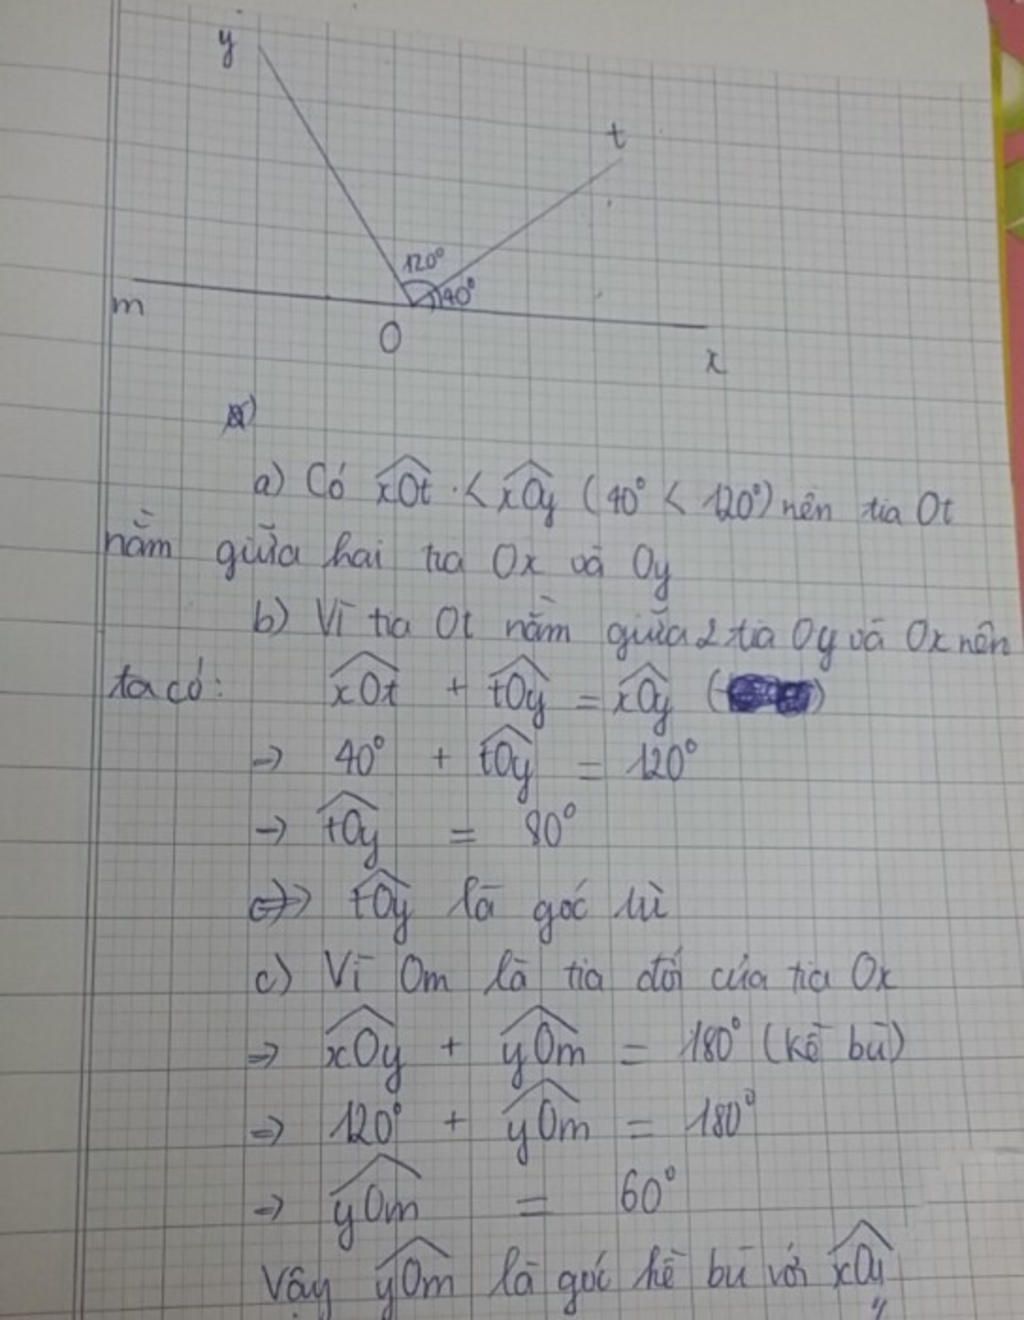 y
t
120°
40°
m
O
x
a) Có xOt < xOy (40° < 120°) nên tia Ot
nằm giữa hai tia Ox và Oy
b) Vì tia Ot nằm giữa 2 tia Oy và Ox nên
ta có: xOt + tOy = xOy (
→ 40° + tOy = 120°
→ tOy = 80°
tOy là góc
c) Vì Om là tia đối của tia Ox
⇒ xOy + yOm = 180° (kề bù)
⇒ 120° + yOm = 180°
→ yOm = 60°
Vậy yOm là góc kề bù với xOy